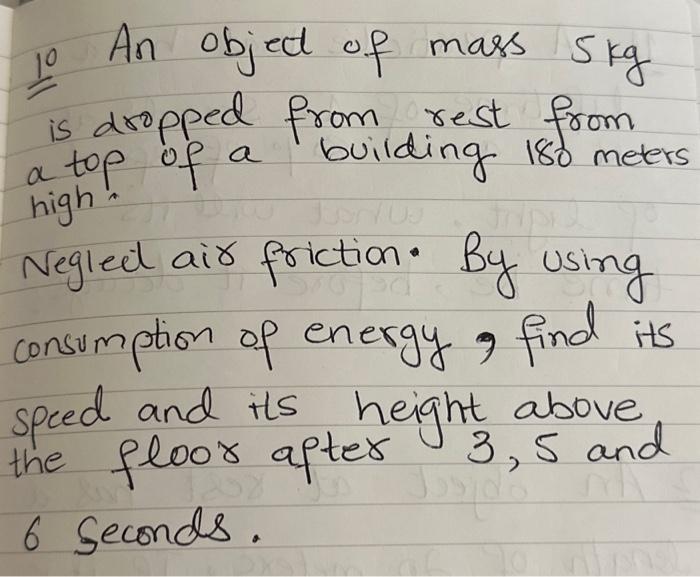 10 An object of mass 5 kg
is dropped from rest from
a top of a building 180 meters
high.
Neglect air friction. By using
consumption of energy, find its
speed and its height above
the floor after 3, 5 and
6 seconds.